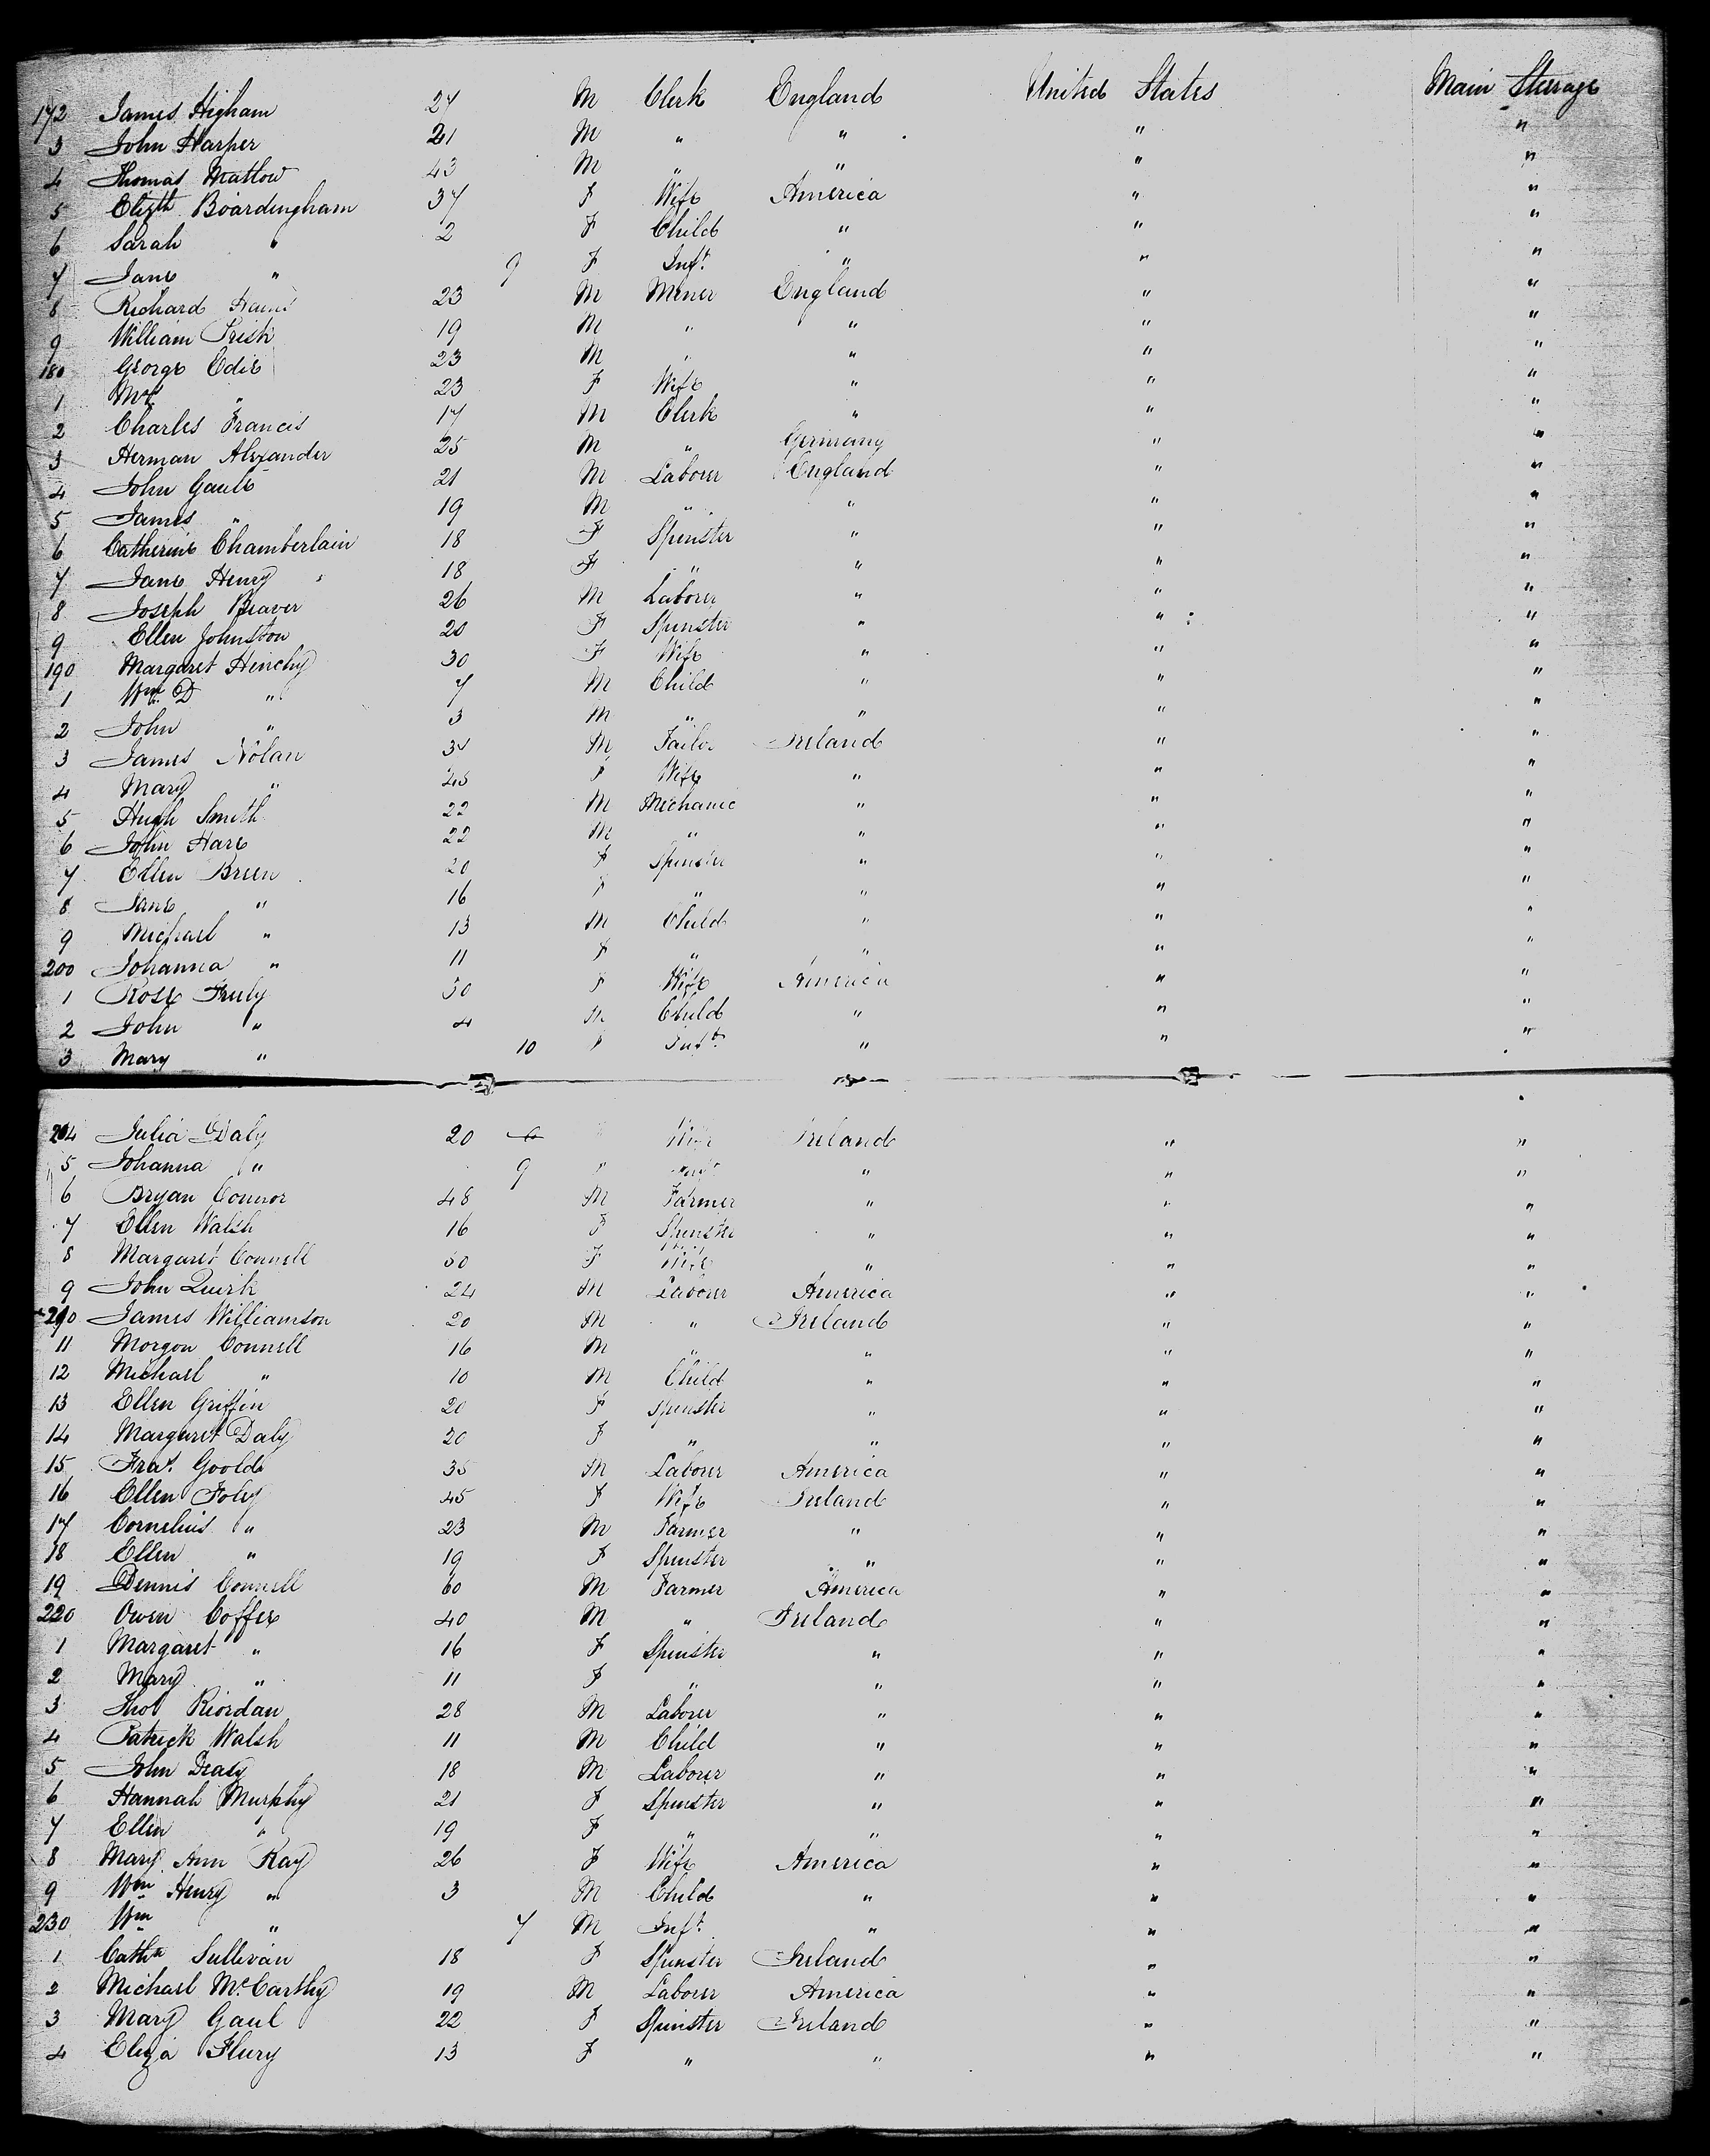 172 James Higham 24 M Clerk England United States Main Steerage
3 John Harper 21 M " " " "
4 Thomas Matlow 43 M " " " "
5 Elizth Boardingham 37 F Wife America " "
6 Sarah " 2 F Child " " "
7 Jane " 9 F Inft. " " "
8 Richard 23 M Miner England " "
9 William Irish 19 M " " " "
180 George Edie 23 M " " " "
1 " 23 F Wife " " "
2 Charles Francis 17 M Clerk " " "
3 Herman Alexander 25 M " Germany " "
4 John Gaule 21 M Laborer England " "
5 James " 19 M " " " "
6 Catherine Chamberlain 18 F Spinster " " "
7 Jane Henry 18 F " " " "
8 Joseph Beaver 26 M Laborer " " "
9 Ellen Johnston 20 F Spinster " " "
190 Margaret Hinchy 30 F Wife " " "
1 Wm D " 7 M Child " " "
2 John " 3 M " " " "
3 James Nolan M Tailor Ireland " "
4 Mary " F Wife " " "
5 Hugh Smith 22 M Mechanic " " "
6 John Hare 22 M " " " "
7 Ellen Breen 20 F Spinster " " "
8 Jane " 16 F " " " "
9 Michael " 13 M Child " " "
200 Johanna " 11 F " " " "
1 Rose Fruly 30 F Wife America " "
2 John " 4 M Child " " "
3 Mary " 10 F Inft. " " "
204 Julia Daly 20 Wife Ireland " "
5 Johanna " 9 F Inft " " "
6 Bryan Connor 48 M Farmer " " "
7 Ellen Walsh 16 F Spinster " " "
8 Margaret Connell 50 F Wife " " "
9 John Quirk 24 M Laborer America " "
210 James Williamson 20 M " Ireland " "
11 Morgon Connell 16 M " " " "
12 Michael " 10 M Child " " "
13 Ellen Griffin 20 F Spinster " " "
14 Margaret Daly 20 F " " " "
15 Fras. Goold 35 M Laborer America " "
16 Ellen Foley 45 F Wife Ireland " "
17 Cornelius " 23 M Farmer " " "
18 Ellen " 19 F Spinster " " "
19 Dennis Connell 60 M Farmer America " "
220 Owen Coffee 40 M " Ireland " "
1 Margaret " 16 F Spinster " " "
2 Mary " 11 F " " " "
3 Thos Riordan 28 M Laborer " " "
4 Patrick Walsh 11 M Child " " "
5 John Deasy 18 M Laborer " " "
6 Hannah Murphy 21 F Spinster " " "
7 Ellen " 19 F " " " "
8 Mary Ann Ray 26 F Wife America " "
9 Wm Henry " 3 M Child " " "
230 Wm " 7 M Inft. " " "
1 Cathn Sullivan 18 F Spinster Ireland " "
2 Michael McCarthy 19 M Laborer America " "
3 Mary Gaul 22 F Spinster Ireland " "
4 Eliza Flury 13 F " " " "